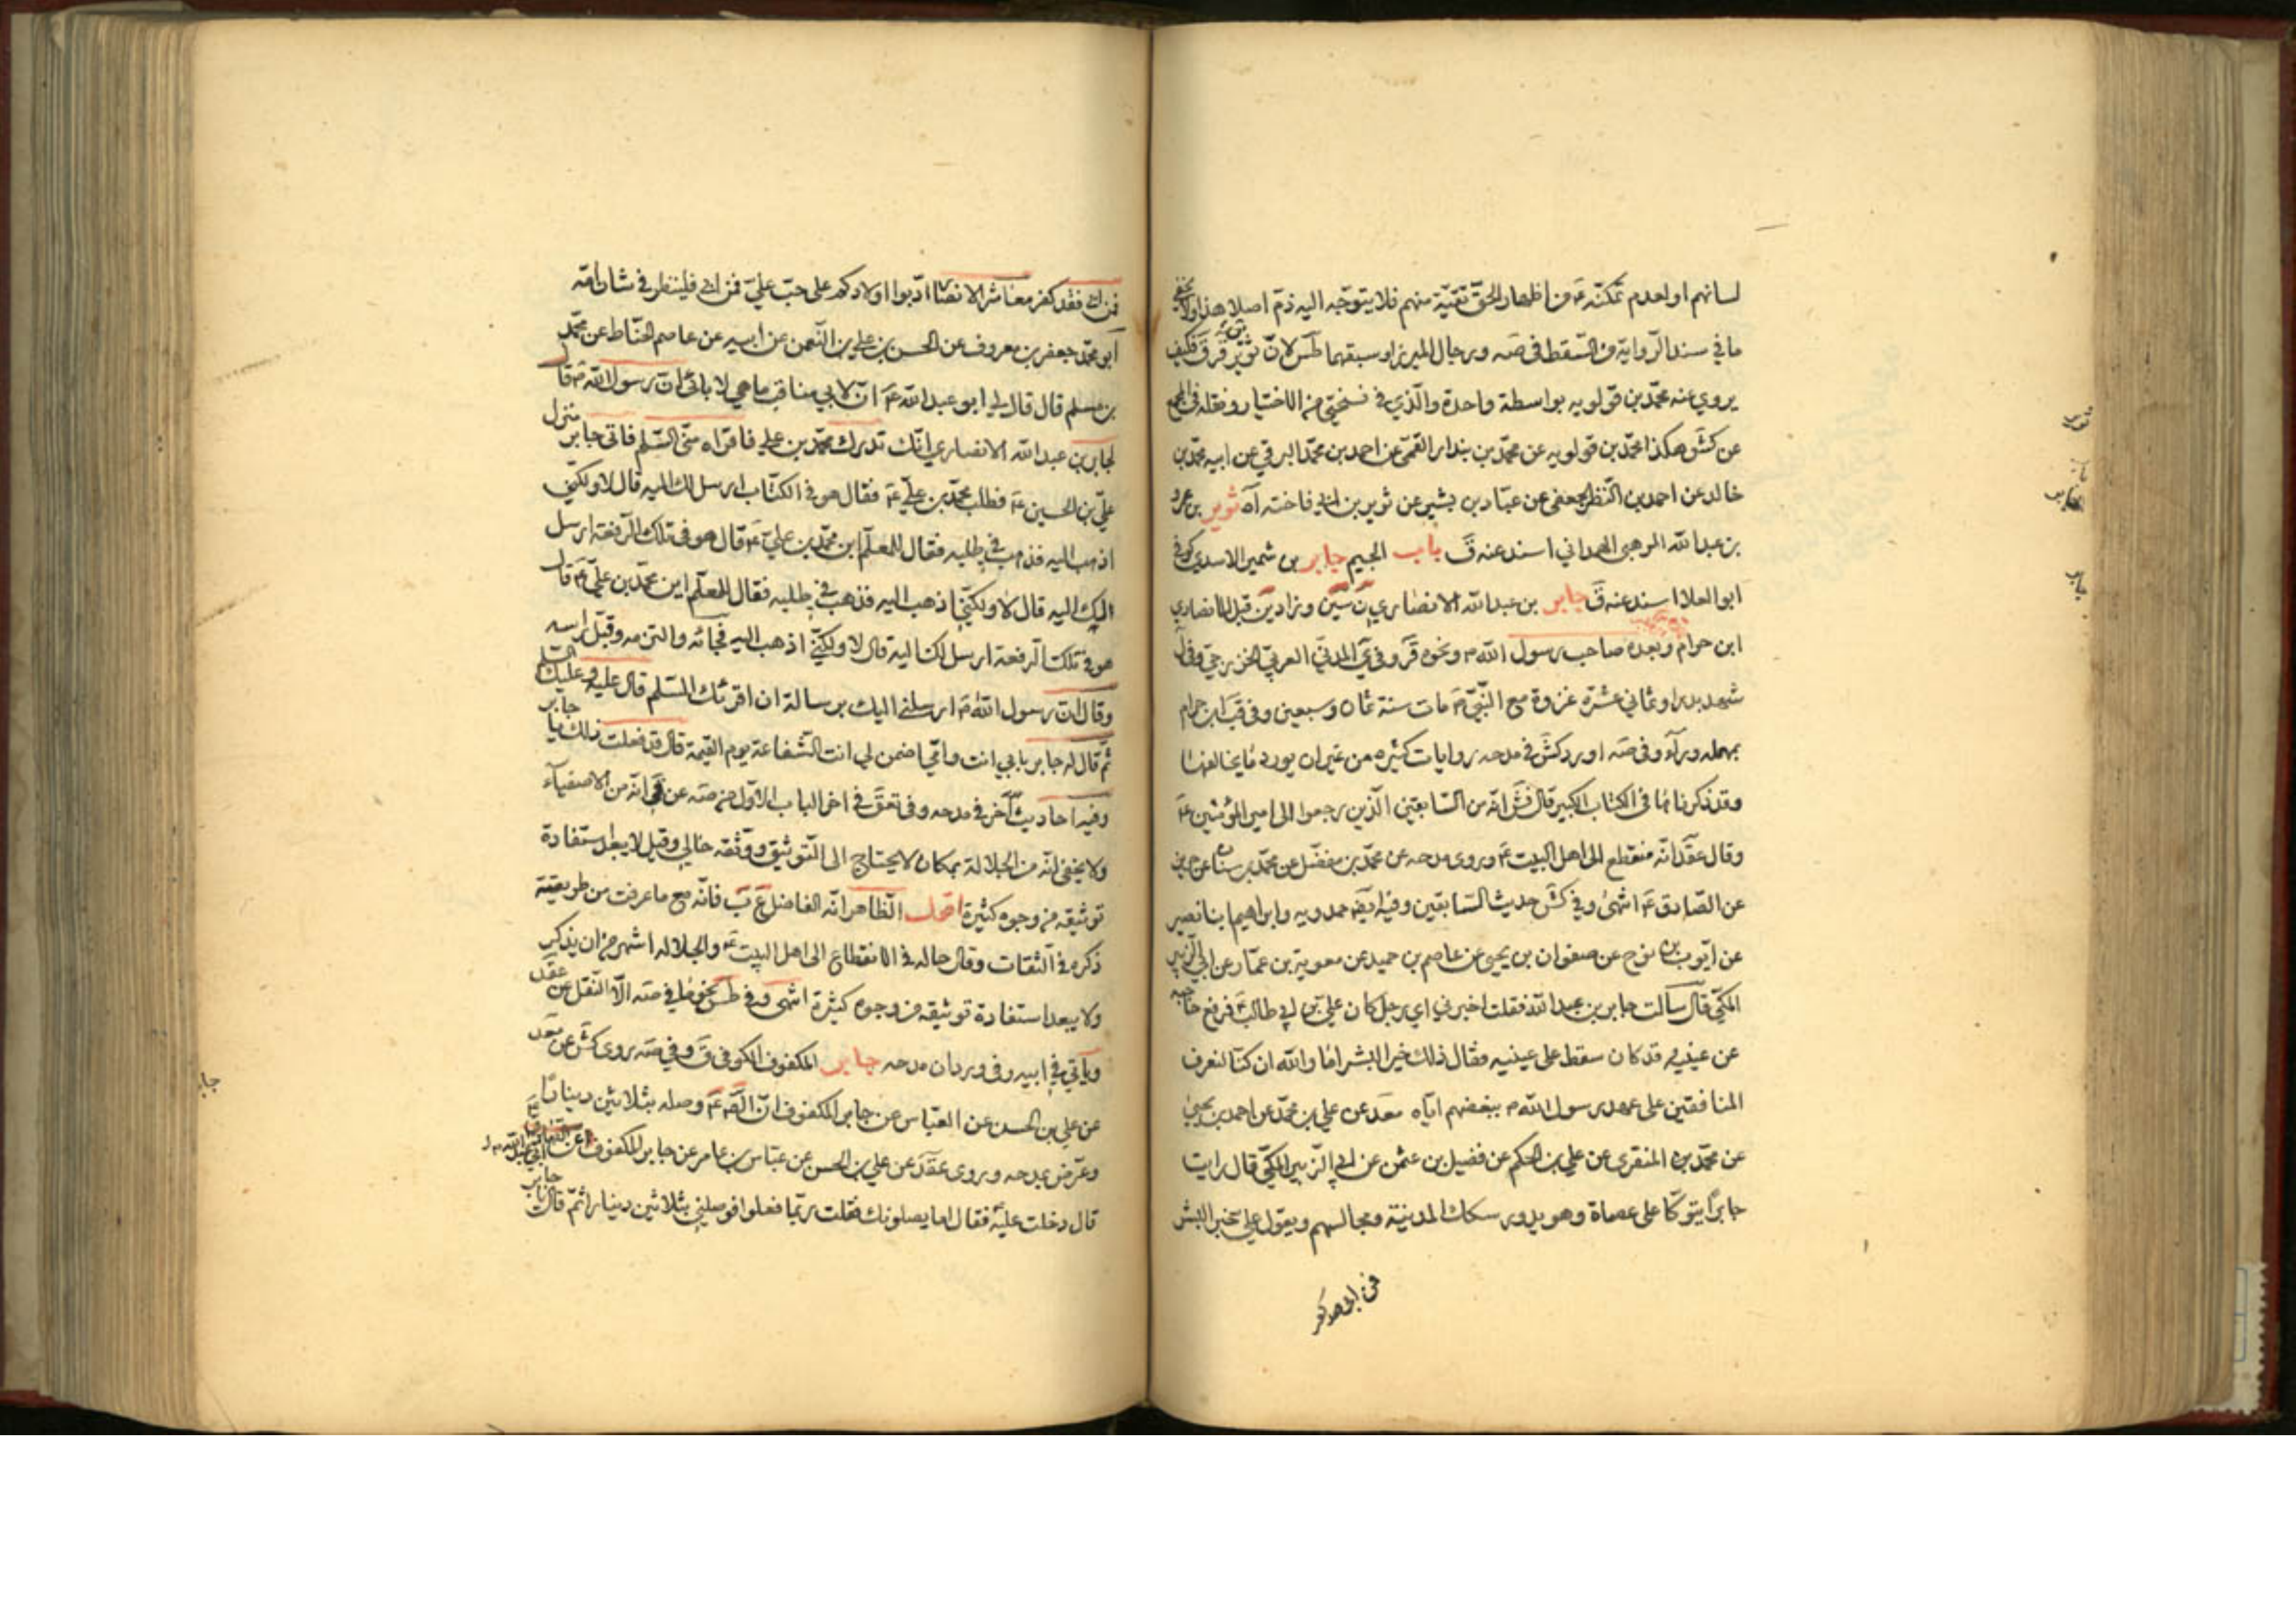 لسانهم او لعدم تمكنه ع من اظهار الحق تقية منهم فلا يتوجه اليه ذم اصلا هذا ولا يخفى
ما في سند الرواية من السقط في صه ورجال الميرزا وسبقهما طس لان ثوير قر ق فكيف
يروي عنه محمد بن قولويه بواسطة واحدة والذي في نسختي من الاختيار ونقله في المجمع
عن كش هكذا محمد بن قولويه عن محمد بن بندار القمي عن احمد بن محمد البرقي عن ابيه محمد بن
خالد عن احمد بن النضر الجعفي عن عباد بن بشير عن ثوير بن ابي فاخته اه ثوير بن عمرو
بن عبد الله المرهبي الهمداني اسند عنه ق باب الجيم جابر بن شمير الاسدي كوفي
ابو العلا اسند عنه ق جابر بن عبد الله الانصاري ن سين وزاد ين قبل الانصاري
ابن حرام وبعده صاحب رسول الله ص ونحوه قر وفي ي المدني العربي الخزرجي وفي ل
شهد بدرا وثماني عشرة غزوة مع النبي ص مات سنة ثمان وسبعين وفي قب ابن حرام
بمهملة وراء وفي صه اورد كش في مدحه روايات كثيرة من غير ان يورد ما يخالفها
وقد ذكرناها في الكتاب الكبير قال فش انه من السابقين الذين رجعوا الى امير المؤمنين ع
وقال عقد انه منقطع الى اهل البيت ع وروى مدحه عن محمد بن مفضل عن محمد بن سنان عن حريز
عن الصادق ع انتهى وفي كش حديث السابقين وفيه ايضه حمدويه وابراهيم ابنا نصير
عن ايوب بن نوح عن صفوان بن يحيى عن عاصم بن حميد عن معوية بن عمار عن ابي الزبير
المكي قال سالت جابر بن عبد الله فقلت اخبرني اي رجل كان علي بن ابي طالب ع فرفع حاجبه
عن عينيه قد كان سقط على عينيه فقال ذلك خير البشر اما والله ان كنا لنعرف
المنافقين على عهد رسول الله ص ببغضهم اياه معد عن علي بن محمد عن احمد بن يحيى
عن محمد بن المنقري عن علي بن الحكم عن فضيل بن عثمن عن ابي الزبير المكي قال رايت
جابرا يتوكا على عصاة وهو يدور سكك المدينة ومجالسهم ويقول علي خير البشر
فمن ابى فقد كفر
فمن ابى فقد كفر معاشر الانصار ادبوا اولادكم على حب علي فمن ابى فلينظر في شان امه
ابو محمد جعفر بن معروف عن الحسن بن علي بن النعمن عن ابيه عن عاصم الحناط عن محمد
بن مسلم قال قال لي ابو عبد الله ع ان لابي مناقب ما هي لابائي ان رسول الله ص قال
لجابر بن عبد الله الانصاري انك تدرك محمد بن علي فاقراه مني السلم فاتى جابر منزل
علي بن الحسين ع فطلب محمد بن علي ع فقال هو في الكتاب ارسل لك اليه قال لا ولكني
اذهب اليه فذهب في طلبه فقال للمعلم اين محمد بن علي ع قال هو في تلك الرفعة ارسل
اليك اليه قال لا ولكني اذهب اليه فذهب في طلبه فقال للمعلم اين محمد بن علي ع قال
هو في تلك الرفعة ارسل لك اليه قال لا ولكني اذهب اليه فجائه والتزمه وقبل راسه
وقال ان رسول الله ص ارسلني اليك برسالة ان اقرئك السلم قال عليه وعليك السلم
ثم قال له جابر بابي انت وامي اضمن لي انت الشفاعة يوم القيمة قال قد فعلت ذلك يا جابر
وفيه احاديث اخر في مدحه وفي تعق في اخر الباب الاول من صه عن قي انه من الاصفياء
ولا يخفى انه من الجلالة بمكان لا يحتاج الى التوثيق ووثقه خالي وقيل لا يبعد استفادة
توثيقه من وجوه كثيرة اقول الظاهر انه الفاضل ع ب فانه مع ما عرفت من طريقته
ذكره في الثقات وقال حاله في الانقطاع الى اهل البيت ع والجلالة اشهر من ان يذكر
ولا يبعد استفادة توثيقه من وجوه كثيرة انتهى وفي طس نحو ما في صه الا النقل عن عقد
وياتي في ابيه وفي وردان مدحه جابر المكفوف الكوفي ق وفي صه روى كش عن معد
عن علي بن الحسن عن العباس عن جابر المكفوف ان الص ع وصله بثلاثين دينارا
وعرض بمدحه وروى عقد عن علي بن الحسن عن عباس بن عامر عن جابر المكفوف
قال دخلت عليه فقال اما يصلونك فقلت ربما فعلوا فوصلني بثلاثين دينارا ثم قال يا جابر
ثوير
جابر
جابر